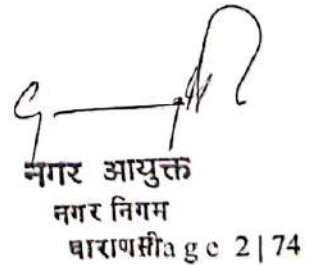 नगर आयुक्त
नगर निगम
वाराणसीa g e 2 | 74